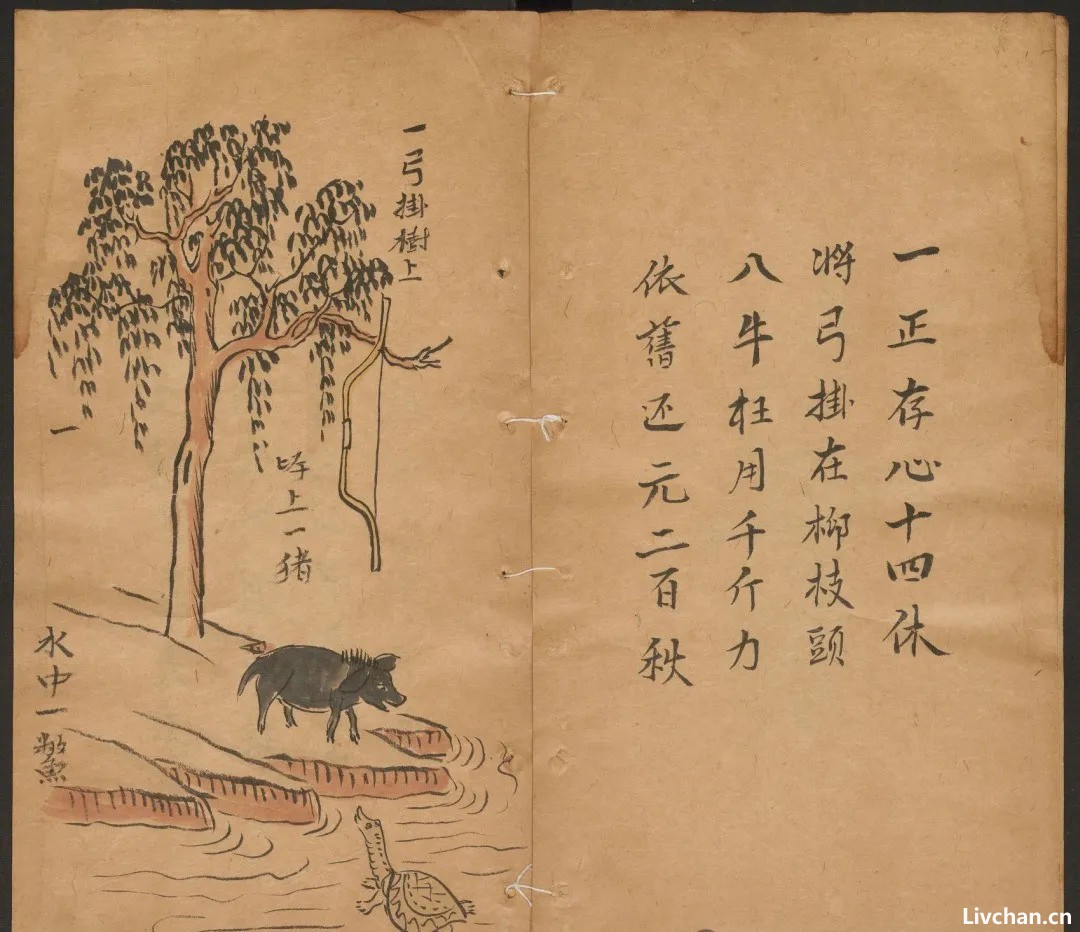 一正存心十四休
將弓掛在柳枝頭
八牛枉用千斤力
依舊还元二百秋
一弓掛樹上
上一猪
水中一鱉
一
Livchan.cn